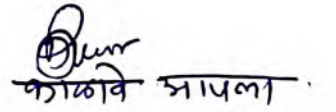 कळावे आपला